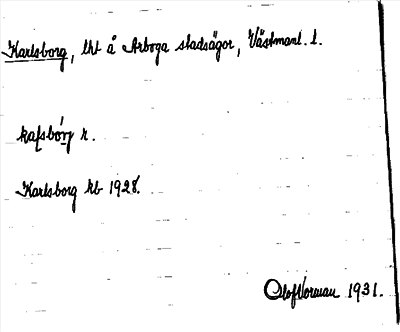 Karlsborg, lht å Arboga stadsägor, Västmanl. l.
kaʃsbórj r.
Karlsborg kb 1928.
Olof Norman 1931.